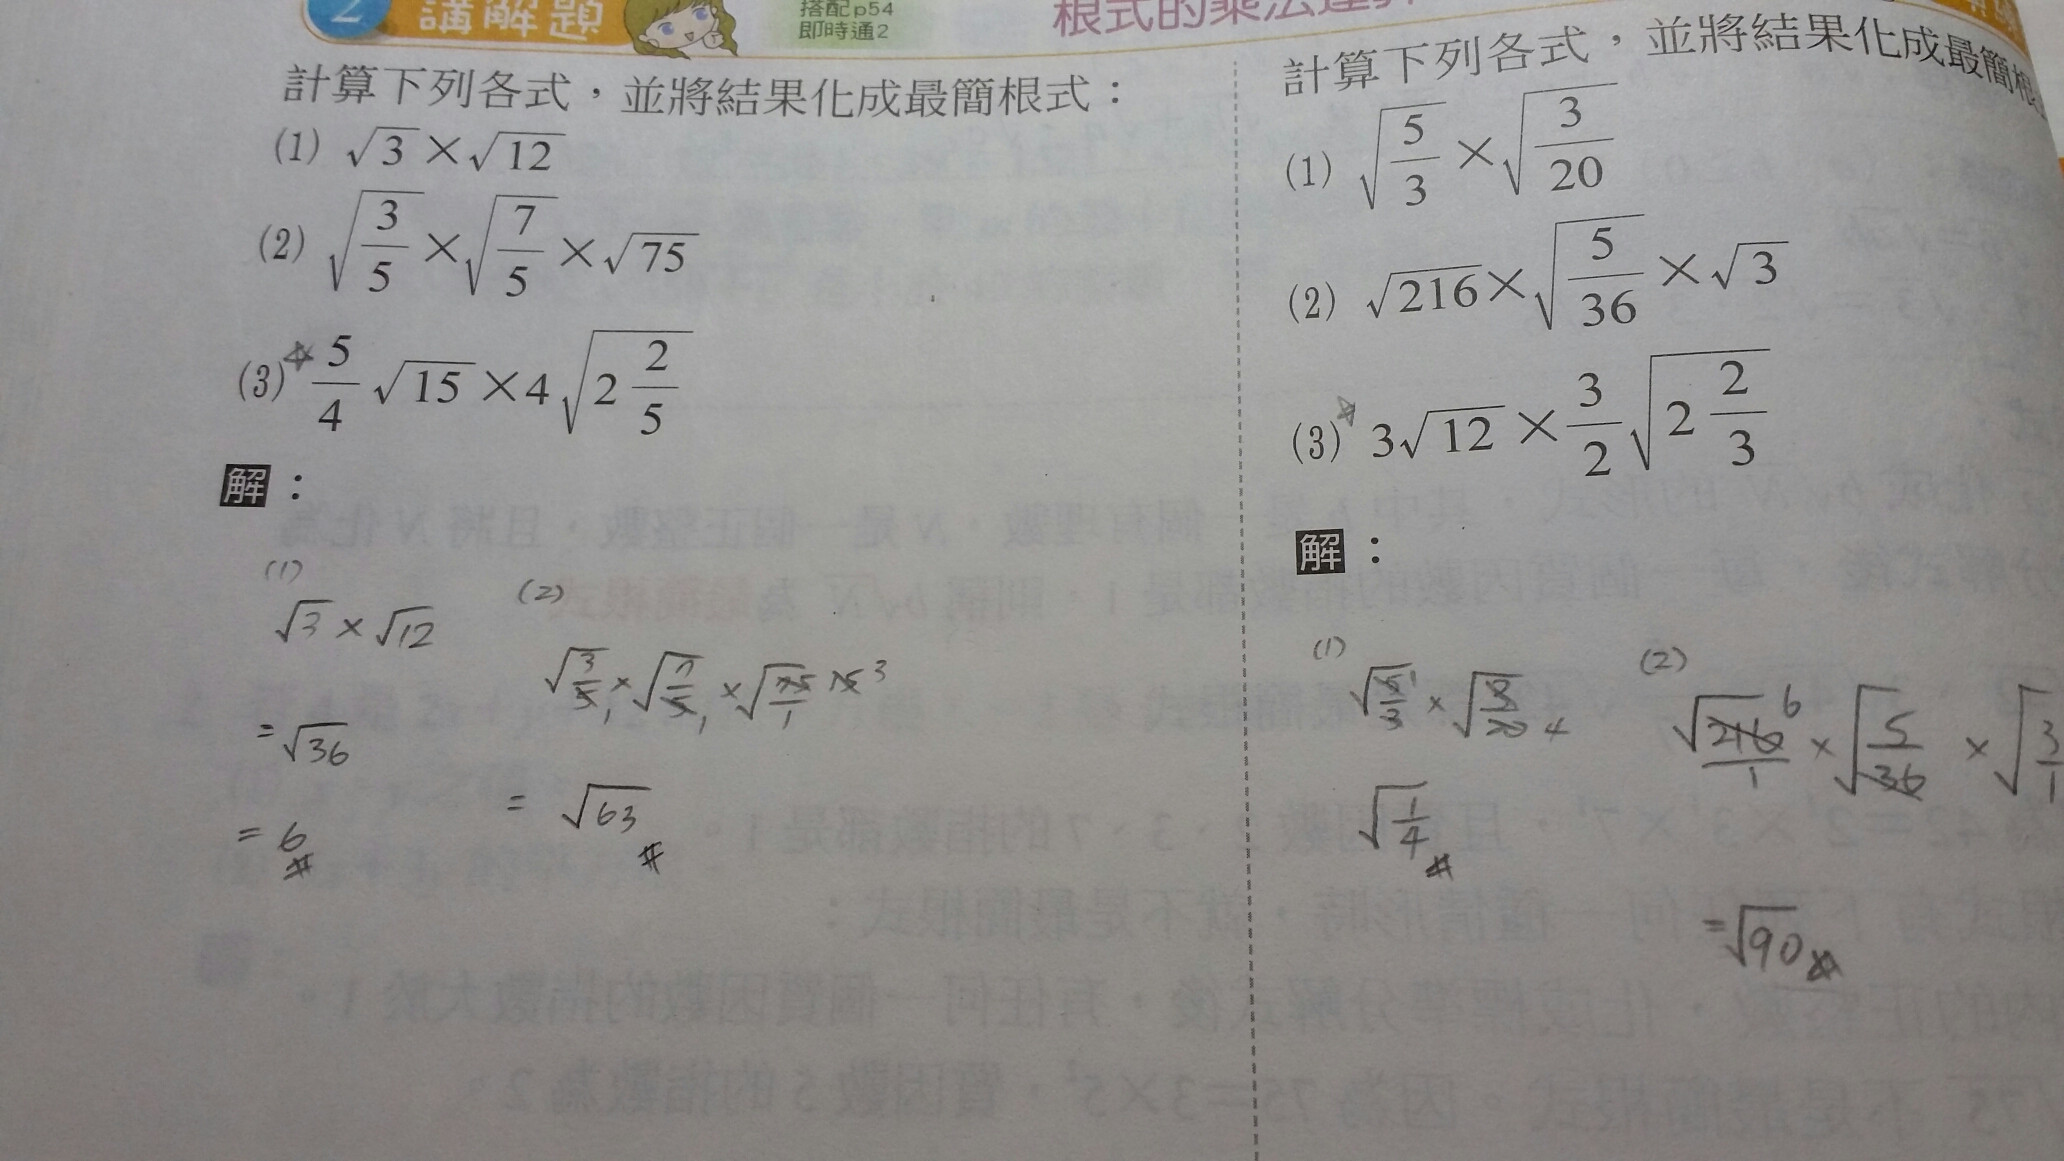 2 講解題
搭配p54
即時通2
根式的乘法運算
計算下列各式，並將結果化成最簡根式：
(1) √3×√12
(2) √(3/5)×√(7/5)×√75
(3) 5/4 √15×4√(2 2/5)
解：
(1)
√3×√12
=√36
=6#
(2)
√(3/5)×√(7/5)×√(75/1) 15 3
=√63#
計算下列各式，並將結果化成最簡根
(1) √(5/3)×√(3/20)
(2) √216×√(5/36)×√3
(3) 3√12×3/2 √(2 2/3)
解：
(1)
√(5/3) 1 ×√(3/20) 4
√(1/4)#
(2)
√216/1 6 ×√(5/36)×√(3/1)
=√90#